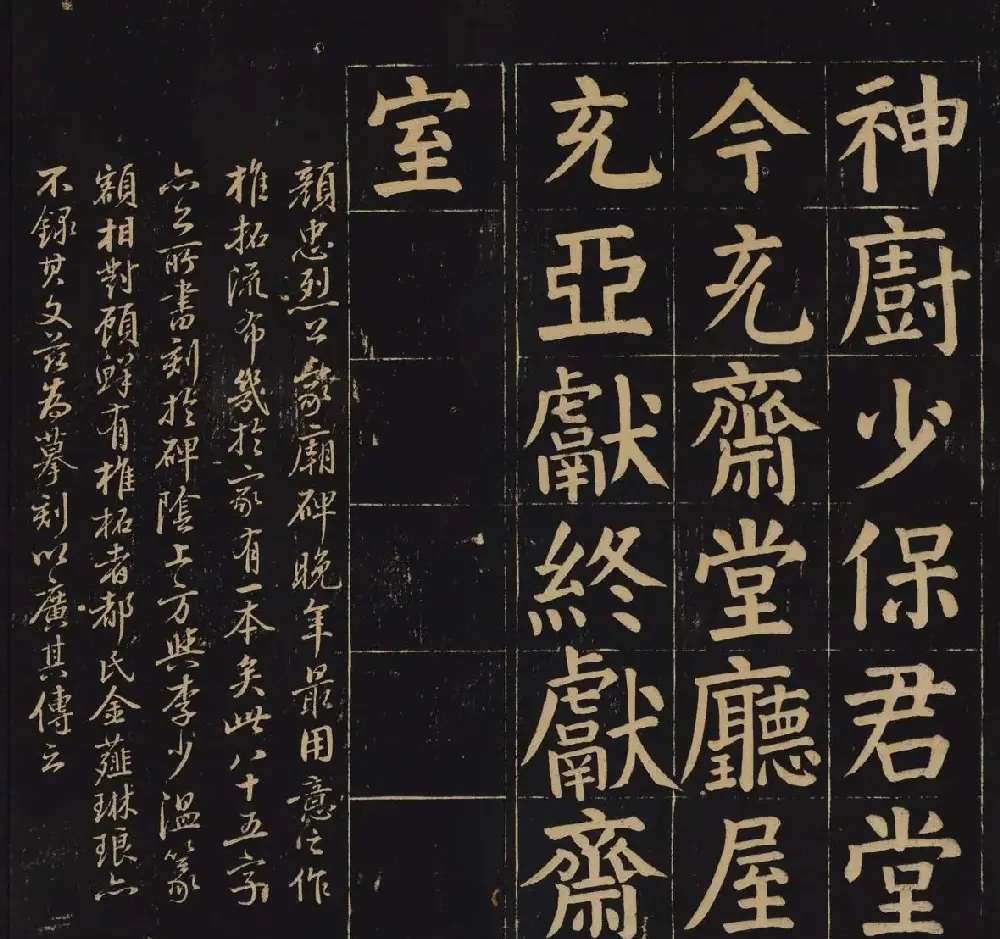 神廚少保君堂
今充齋堂廳屋
充亞獻終獻齋
室
顏忠烈公家廟碑晚年最用意之作
椎拓流布幾於家有一本矣此八十五字
亦公所書刻於碑陰上方與李少溫篆
額相對顧鮮有椎柘者都氏金薤琳琅亦
不錄其文茲為摹刻以廣其傳云